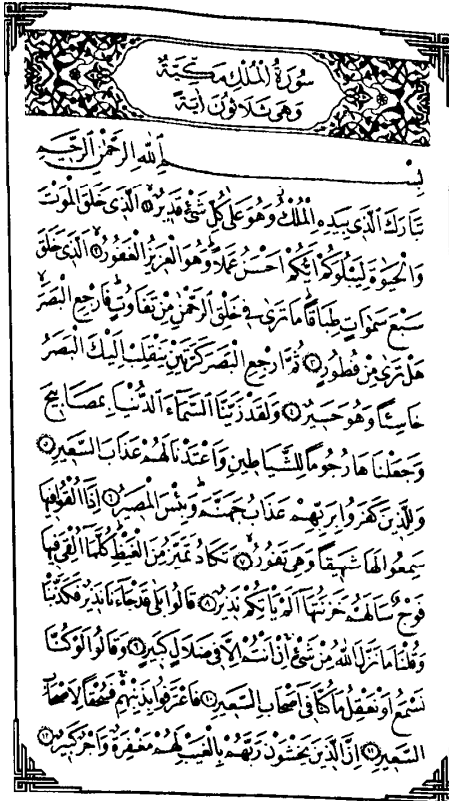 سُورَةُ الْمُلْكِ مَكِّيَّةٌ
وَهِىَ ثَلَاثُونَ اٰيَةً
بِسْمِ اللّٰهِ الرَّحْمٰنِ الرَّحِيمِ
تَبَارَكَ الَّذِى بِيَدِهِ الْمُلْكُ وَهُوَ عَلٰى كُلِّ شَىْءٍ قَدِيرٌ ﴿١﴾ اَلَّذِى خَلَقَ الْمَوْتَ
وَالْحَيٰوةَ لِيَبْلُوَكُمْ اَيُّكُمْ اَحْسَنُ عَمَلًا وَهُوَ الْعَزِيزُ الْغَفُورُ ﴿٢﴾ اَلَّذِى خَلَقَ
سَبْعَ سَمٰوَاتٍ طِبَاقًا مَا تَرٰى فِى خَلْقِ الرَّحْمٰنِ مِنْ تَفَاوُتٍ فَارْجِعِ الْبَصَرَ
هَلْ تَرٰى مِنْ فُطُورٍ ﴿٣﴾ ثُمَّ ارْجِعِ الْبَصَرَ كَرَّتَيْنِ يَنْقَلِبْ اِلَيْكَ الْبَصَرُ
خَاسِئًا وَهُوَ حَسِيرٌ ﴿٤﴾ وَلَقَدْ زَيَّنَّا السَّمَاءَ الدُّنْيَا بِمَصَابِيحَ
وَجَعَلْنَاهَا رُجُومًا لِلشَّيَاطِينِ وَاَعْتَدْنَا لَهُمْ عَذَابَ السَّعِيرِ ﴿٥﴾
وَلِلَّذِينَ كَفَرُوا بِرَبِّهِمْ عَذَابُ جَهَنَّمَ وَبِئْسَ الْمَصِيرُ ﴿٦﴾ اِذَا اُلْقُوا فِيهَا
سَمِعُوا لَهَا شَهِيقًا وَهِىَ تَفُورُ ﴿٧﴾ تَكَادُ تَمَيَّزُ مِنَ الْغَيْظِ كُلَّمَا اُلْقِىَ فِيهَا
فَوْجٌ سَاَلَهُمْ خَزَنَتُهَا اَلَمْ يَاْتِكُمْ نَذِيرٌ ﴿٨﴾ قَالُوا بَلٰى قَدْ جَاءَنَا نَذِيرٌ فَكَذَّبْنَا
وَقُلْنَا مَا نَزَّلَ اللّٰهُ مِنْ شَىْءٍ اِنْ اَنْتُمْ اِلَّا فِى ضَلَالٍ كَبِيرٍ ﴿٩﴾ وَقَالُوا لَوْ كُنَّا
نَسْمَعُ اَوْ نَعْقِلُ مَا كُنَّا فِى اَصْحَابِ السَّعِيرِ ﴿١٠﴾ فَاعْتَرَفُوا بِذَنْبِهِمْ فَسُحْقًا لِاَصْحَابِ
السَّعِيرِ ﴿١١﴾ اِنَّ الَّذِينَ يَخْشَوْنَ رَبَّهُمْ بِالْغَيْبِ لَهُمْ مَغْفِرَةٌ وَاَجْرٌ كَبِيرٌ ﴿١٢﴾